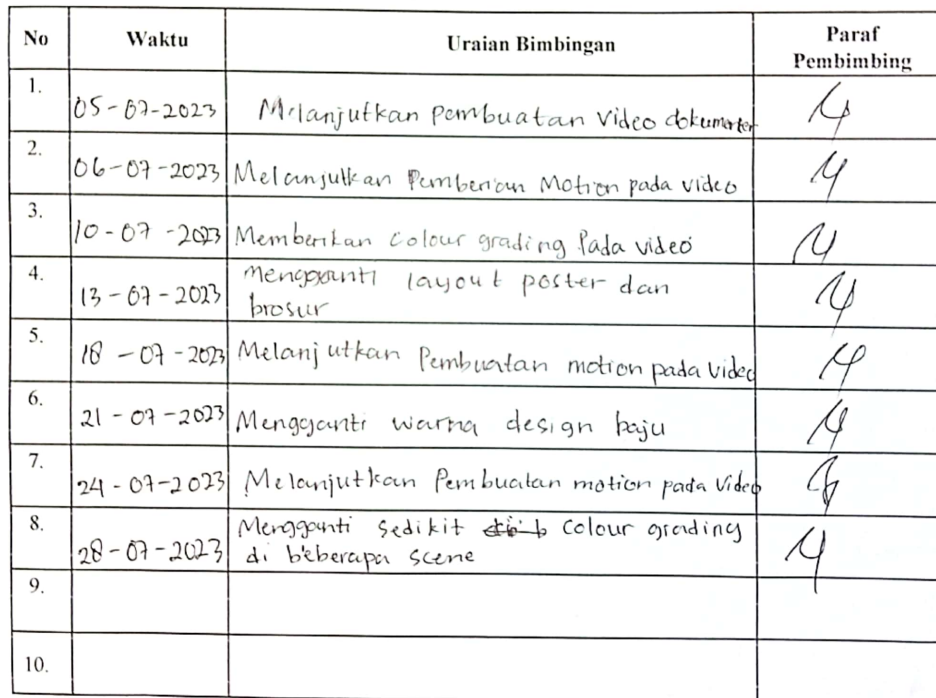 No Waktu Uraian Bimbingan Paraf Pembimbing
1. 05-07-2023 Melanjutkan pembuatan video dokumenter
2. 06-07-2023 Melanjutkan Pemberian Motion pada video
3. 10-07-2023 Memberikan colour grading Pada video
4. 13-07-2023 Mengganti layout poster dan
brosur
5. 18-07-2023 Melanjutkan Pembuatan motion pada video
6. 21-07-2023 Mengganti warna design baju
7. 24-07-2023 Melanjutkan Pembuatan motion pada Video
8. 28-07-2023 Mengganti sedikit colour grading
di beberapa scene
9.
10.